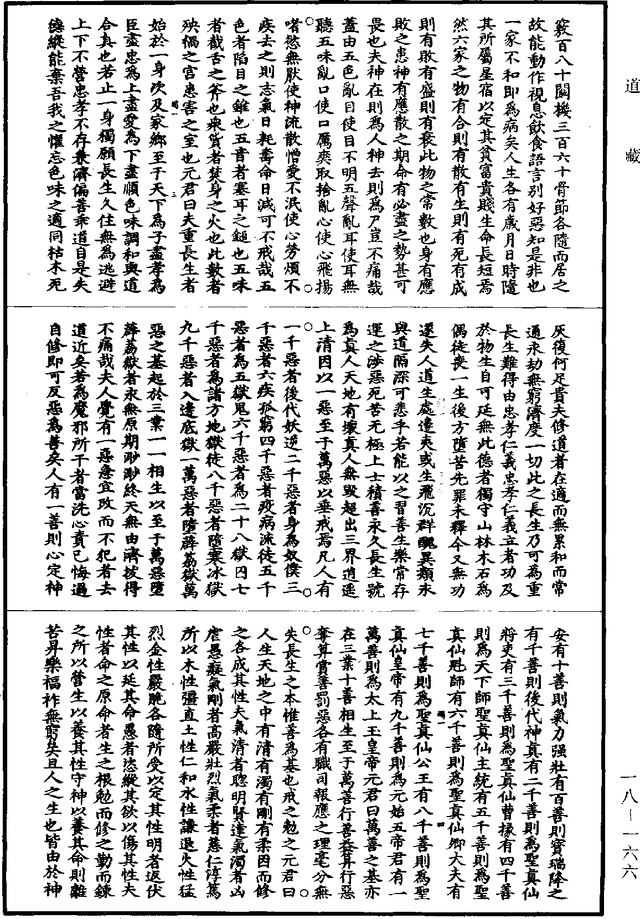 道藏
竅百八十關機三百六十骨節各隨而居之
故能動作視息飲食語言別好惡知是非也
一家不和即為病矣人生各有歲月日時隨
其所屬星宿以定其貧富貴賤生命長短焉
然六家之物有合則有散有生則有死有成
則有敗有盛則有衰此物之常數也身有應
敗之患神有應散之期命有必盡之勢甚可
畏也夫神在則為人神去則為尸豈不痛哉
蓋由五色亂目使目不明五聲亂耳使耳無
聽五味亂口使口厲爽取捨亂心使心飛揚
嗜慾無猒使神流散憎愛不泯使心勞煩不
疾去之則志氣日耗壽命日減可不戒哉五
色者陷目之錐也五音者塞耳之鎚也五味
者截舌之斧也衆貨者焚身之火也此數者
殃禍之宫患害之至也元君曰夫重長生者
始於一身次及家鄉至于天下為子盡孝為
臣盡忠為上盡愛為下盡順色味調和與道
合真也若止一身獨願長生久住無為逃避
上下不營忠孝不存兼濟偏善乖道自是失
德縱能棄吾我之懽忘色味之適同枯木死
灰復何足貴夫修道者在適而無累和而常
通永劫無窮濟度一切此之長生乃可為重
長生難得由忠孝仁義忠孝仁義立者功及
於物生自可延無此德者獨守山林木石為
偶徒喪一生後方墮苦先罪未釋今又無功
還失人道生處邊夷或生飛沉群醜異類永
與道隔深可悲乎若能以之習善生樂常存
運之涉惡死苦無極上士積善永久長生號
為真人天地有壞真人無毀超出三界逍遥
上清因以一惡至于萬惡以垂戒焉凡人有
一千惡者後代妖逆二千惡者身為奴僕三
千惡者六疾孤窮四千惡者疫病流徒五千
惡者為五獄鬼六千惡者為二十八獄囚七
千惡者為諸方地獄徒八千惡者墮寒冰獄
九千惡者入邊底獄一萬惡者墮薜荔獄萬
惡之基起於三業一一相生以至于萬惡墮
薜荔獄者永無原期渺渺終天無由濟拔得
不痛哉夫人覺有一惡急宜改而不犯者去
道近矣若為魔邪所干者當洗心責己悔過
自修即可反惡為善矣人有一善則心定神
安有十善則氣力强壯有百善則寳瑞降之
有千善則後代神真有二千善則為聖真仙
將吏有三千善則為聖真仙曹掾有四千善
則為天下師聖真仙主統有五千善則為聖
真仙魁師有六千善則為聖真仙卿大夫有
七千善則為聖真仙公王有八千善則為聖
真仙皇帝有九千善則為元始五帝君有一
萬善則為太上玉皇帝元君曰萬善之基亦
在三業十善相生至于萬善行善益算行惡
奪算賞善罰惡各有職司報應之理毫分無
失長生之本惟善為基也戒之勉之元君曰
人生天地之中有清有濁有剛有柔因而修
之各成其性夫氣清者聰明賢達氣濁者凶
虐愚癡氣剛者高嚴壯烈氣柔者慈仁淳篤
所以木性彊直土性仁和水性謙退火性猛
烈金性嚴脆各隨所受以定其性明者返伏
其性以延其命愚者恣縱其欲以傷其性夫
性者命之原命者生之根勉而修之勤而鍊
之所以營生以養其性守神以養其命則離
苦昇樂福祚無窮矣且人之生也皆由於神
一八—一六六